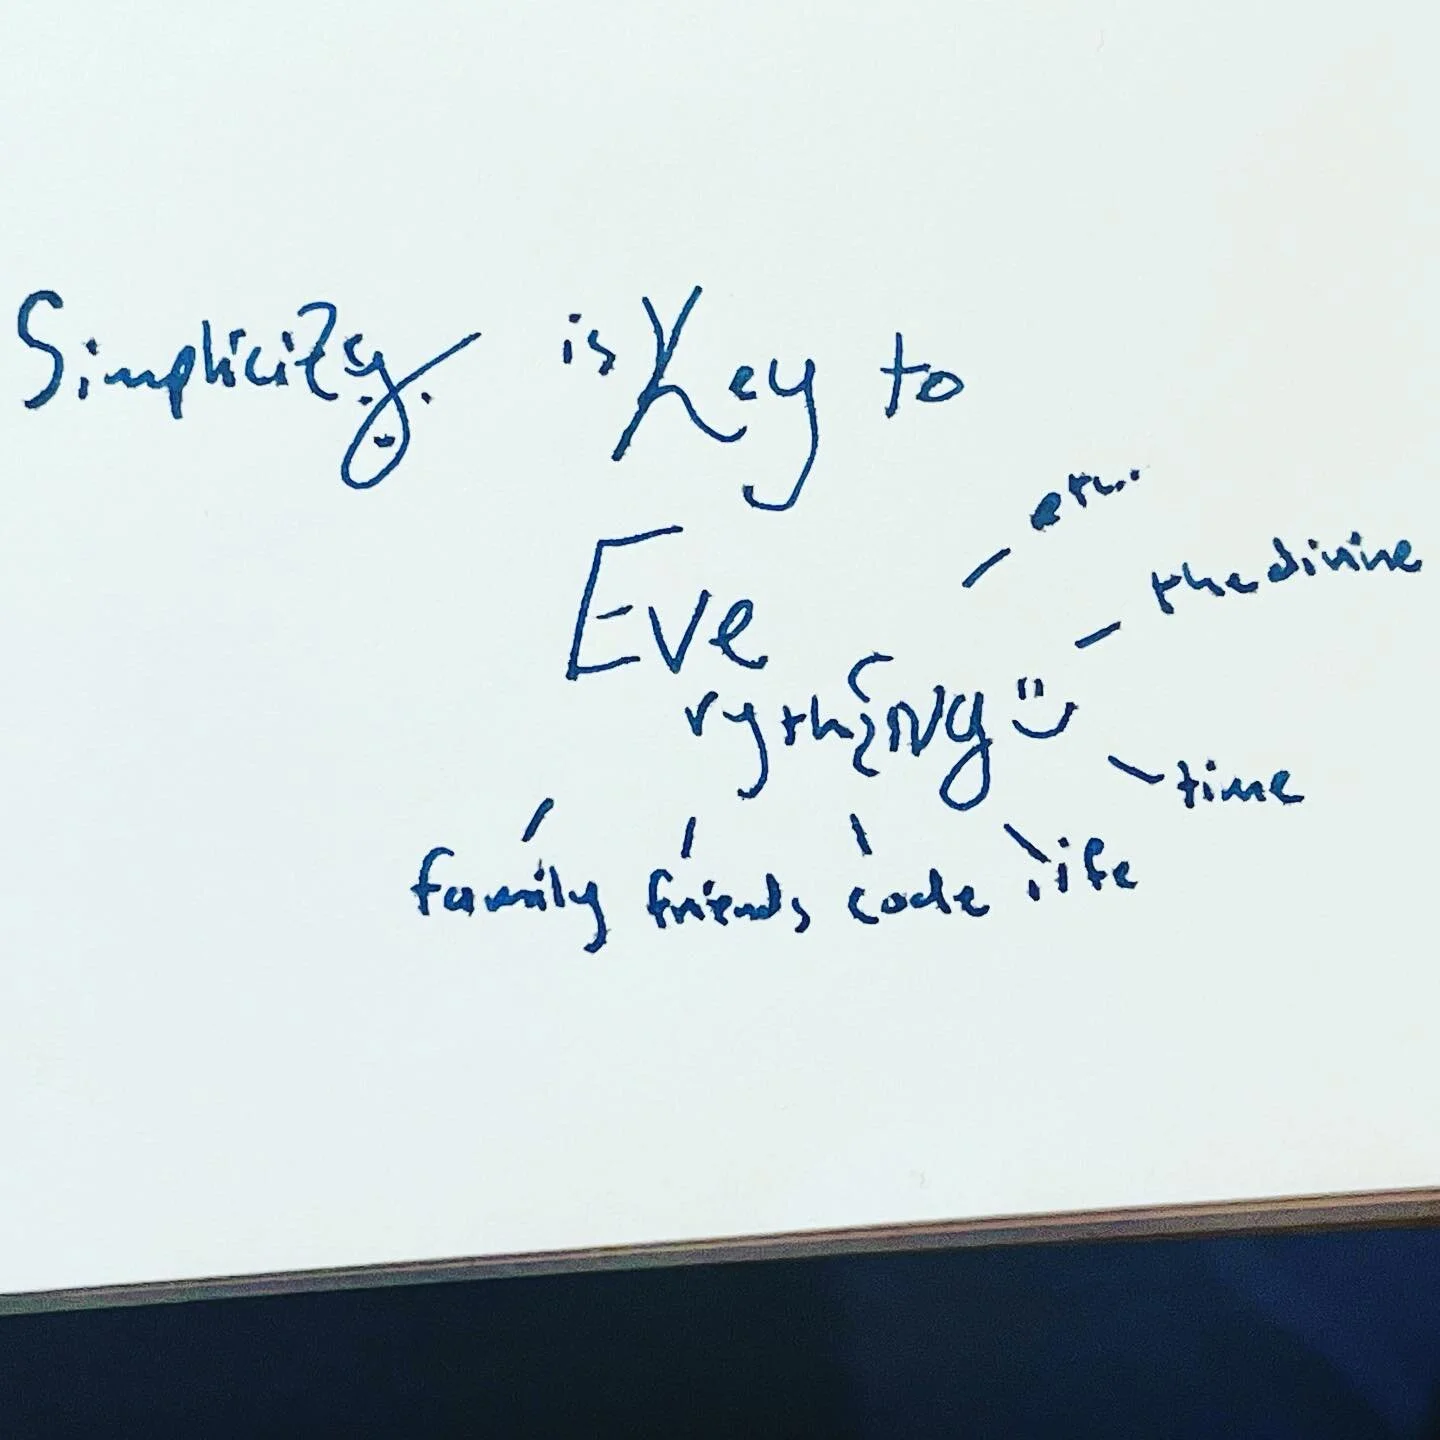 Simplicity is Key to
Eve
rythiNg
the divine
time
family friends code life